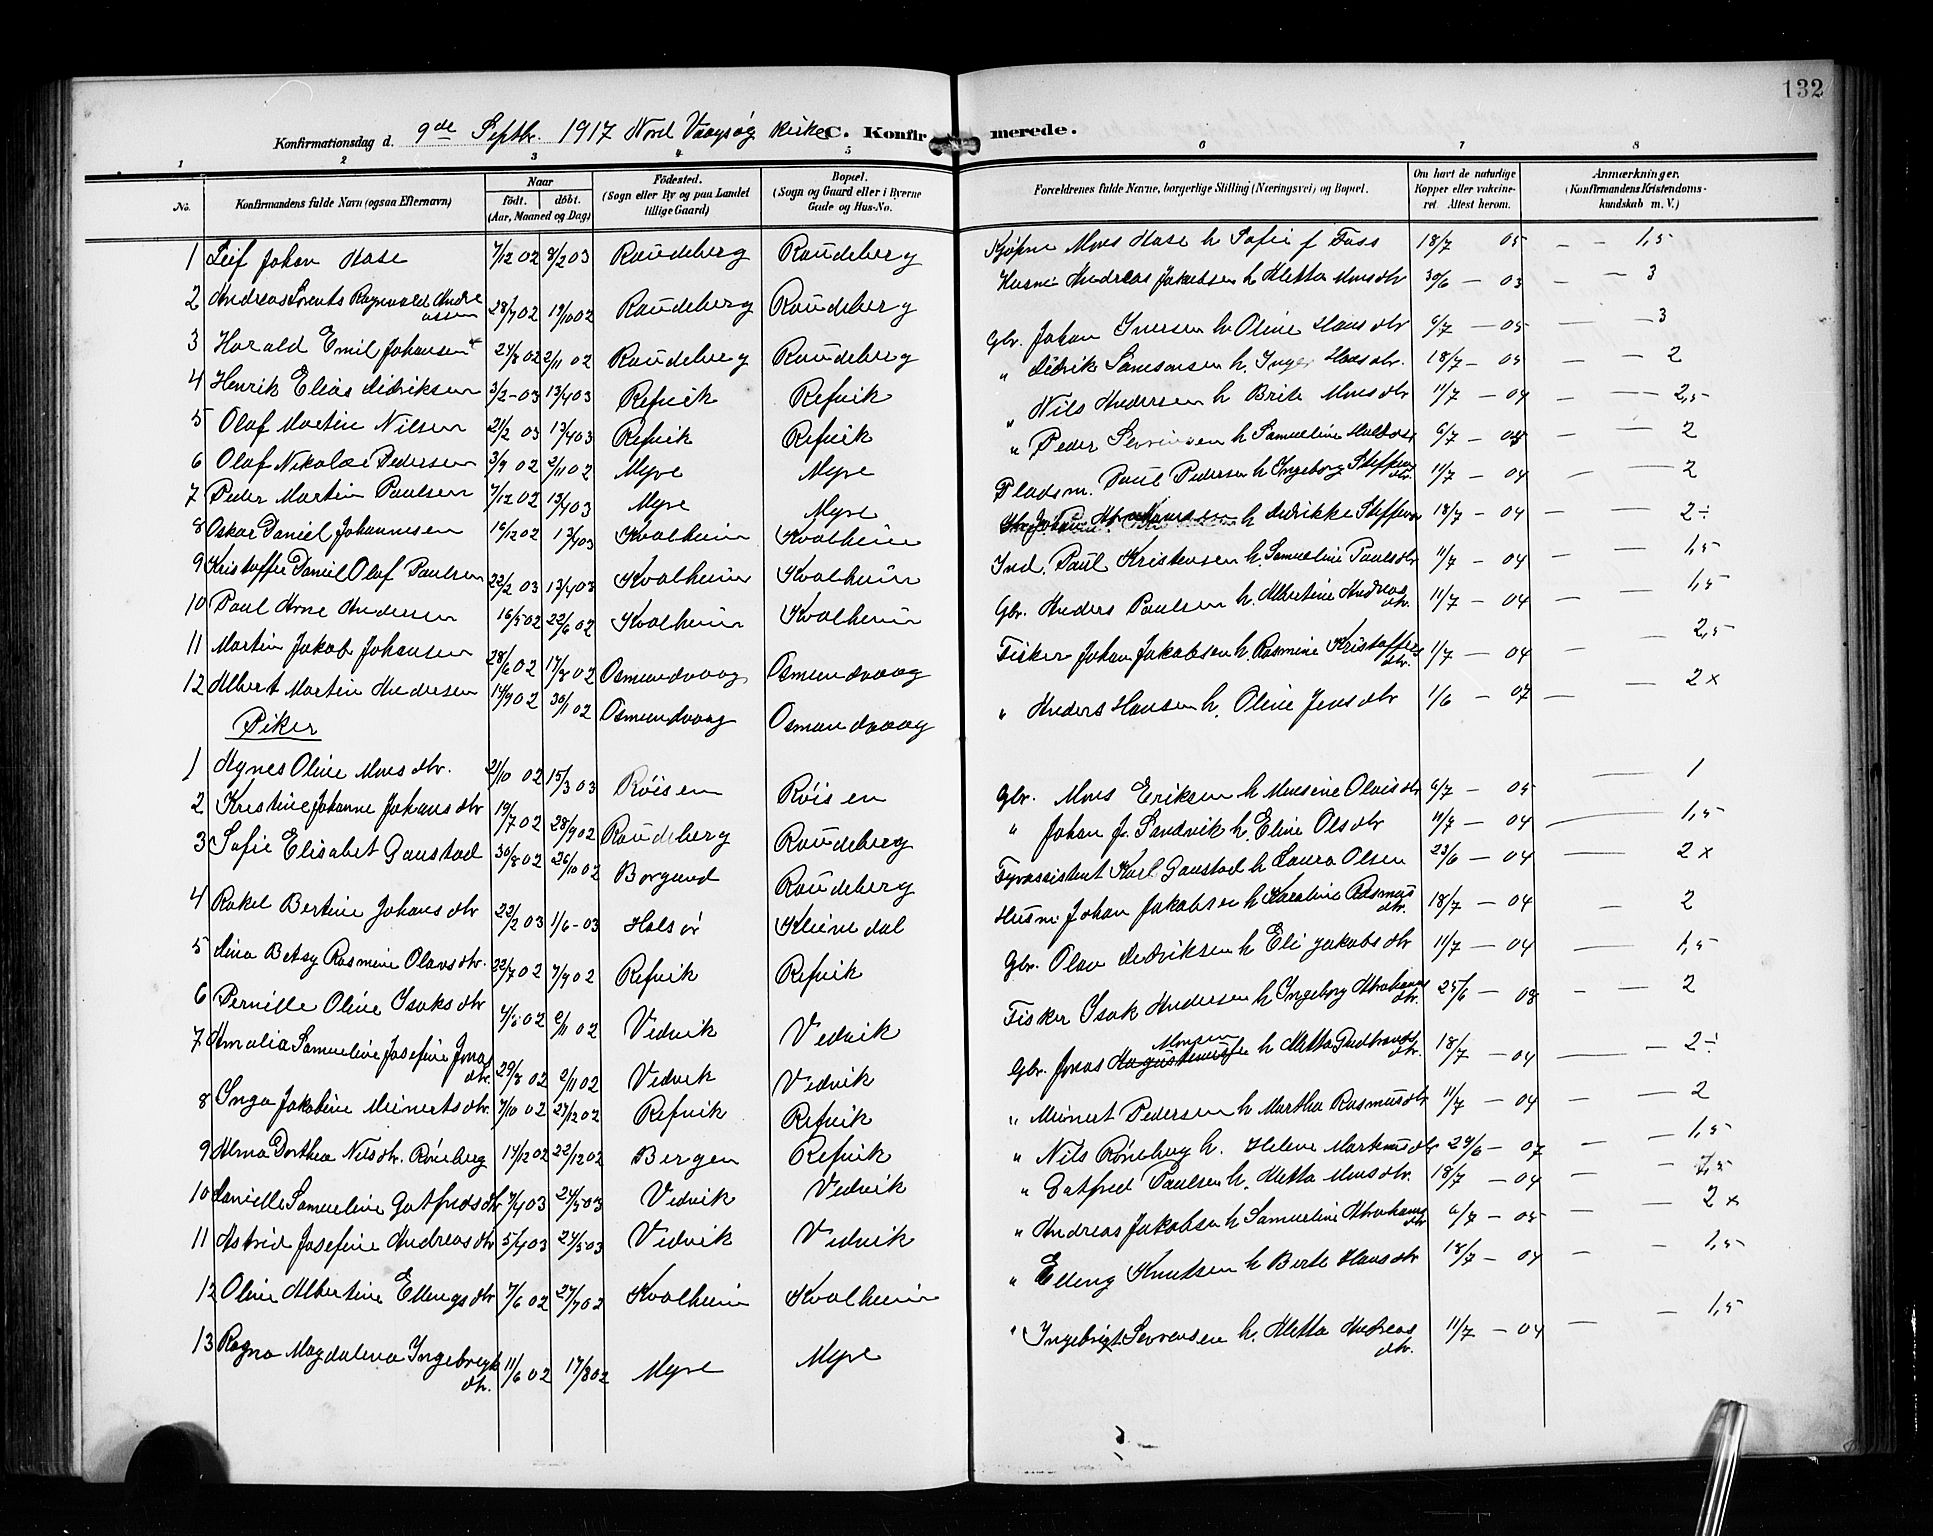 132
Konfirmationsdag d. 9de Septbr. 1917 Nord Vaagsøy Kirke C. Konfirmerede.
1 2 3 4 5 6 7 8
No. Konfirmandens fulde Navn (ogsaa Efternavn) Naar født. døbt. (Aar, Maaned og Dag) Fødested. (Sogn eller By og paa Landet tillige Gaard) Bopæl. (Sogn og Gaard eller i Byerne Gade og Hus-No. Forældrenes fulde Navne, borgerlige Stilling (Næringsvei) og Bopæl. Om havt de naturlige Kopper eller vaccineret. Attest herom. Anmærkninger. (Konfirmandens Kristendomskundskab m. V.)
1 Leif Johan Hase 7/12 02 8/2 03 Raudeberg Raudeberg Mons Hase h Sofie f Foss 18/7 05 — — 1,5
2 Andreas Lorents Ragnvald Andreassen 28/7 02 19/10 02 Raudeberg Raudeberg Husm. Andreas Jakobsen h Mletta Monsdtr 30/6 — 03 — — 3
3 Harald Emil Johansen 24/8 02 2/11 02 Raudeberg Raudeberg Gbr. Johan Iversen h. Oline Hansdtr 6/7 — 05 — — 3
4 Henrik Elias Didriksen 3/2 - 03 13/4 03 Refvik Refvik " Didrik Samsonsen h. Inger Hansdtr. 18/7 — 05 — — 2
5 Olaf Martin Nilsen 21/2 03 13/4 03 Refvik Refvik " Nils Andersen h Brite Monsdtr 11/7 — 04 — — 2,5
6 Olaf Nikolai Pedersen 3/9 02 2/11 02 Myre Myre " Peder h Samueline 6/7 — — — 2
7 Peder Martin Paulsen 7/12 02 13/4 03 Myre Myre Pladsm. Paul Pedersen h Ingeborg Steffensdtr. 11/7 — 04 — — 2
8 Oskar Daniel Johannesen 16/12 02 13/4 03 Kvalheim Kvalheim h Didrikke Steffens 18/7 — 04 — — 2÷
9 Kristoffer Daniel Olaf Paulsen 22/2 03 13/4 03 Kvalheim Kvalheim Ind. Paul Kristensen h. Samueline Paulsdtr 11/7 — 04 — — 1,5
10 Paul Arne Andersen 16/5 02 22/6 02 Kvalheim Kvalheim Gbr. Anders Paulsen h. Albertine Andreasdtr. 11/7 — 04 — — 1,5
11 Martin Jakob Johansen 28/6 02 17/8 02 Osmundvaag Osmundvaag Fisker Johan Jakobsen h. Rasmine Kristoffersdtr. 11/7 — 04 — — 2,5
12 Albert Martin Andersen 14/9 02 30/11 02 Osmundvaag Osmundvaag " Anders Hansen h. Oline Jensdtr 1/6 — 07 — — 2 x
Piker
1 Agnes Oline Monsdtr. 2/10 02 15/3 03 Røisen Røisen Gbr. Mons Eriksen h Monsine Olaisdtr 6/7 — 05 — 1
2 Kristine Johanne Johansdtr 19/7 02 28/9 02 Raudeberg Raudeberg " Johan J. Sandvik h. Eline Olsdtr 11/7 — 04 — 1,5
3 Sofie Elisabet Gaustad 30/8 02 26/10 02 Borgund Raudeberg Fyrassistent Karl Gaustad h Laura Olsen 23/6 — 04 — 2 x
4 Rakel Bertine Johansdtr 22/2 03 1/6 - 03 Halsør Kleinedal Husm. Johan Jakobsen h Karoline Rasmusdtr. 18/7 — 04 — 2
5 Lina Betsy Rasmine Olavsdtr. 22/7 02 7/9 02 Refvik Refvik Gbr. Olav Didriksen h Eli Jakobsdtr 11/7 — 04 — 1,5
6 Pernille Oline Isaksdtr 02 2/11 02 Vedvik Vedvik Fisker Isak Andersen h Ingeborg Abrahamsdtr. 25/6 — 08 — — 2
7 Amalia Samueline Josefine Jonasdtr. 29/8 02 2/11 02 Vedvik Vedvik Gbr. Jonas Monsen h Mletta Gudbrandsdtr. 18/7 — 04 — — 2÷
8 Inga Jakobine Meinertsdtr. 7/10 02 27/12 02 Refvik Refvik " Meinert Pedersen h Martha Rasmusdtr 11/7 — 04 — — 2
9 Alma Dorthea Nilsdtr. Røneberg 14/12 02 22/12 02 Bergen Refvik " Nils Røneberg h. Helene Markusdtr 29/6 — 07 — — 1,5
10 Danielle Samueline Gotfredsdtr 7/4 03 24/5 03 Vedvik Vedvik " Gotfred Paulsen h. Mletta Monsdtr. 18/7 — 04 — —
11 Astrid Josefine Andreasdtr 5/4 03 24/5 03 Vedvik Vedvik " Andreas Jakobsen h Samueline Abrahamsdtr 6/7 — 05 — — 2 x
12 Oline Albertine Ellengsdtr 7/6 02 27/7 02 Kvalheim Kvalheim " Elleng Knutsen h Berte Hansdtr 18/7 — 04 — — 1,5
13 Ragna Magdalena Ingebrigtsdtr. 11/6 02 17/8 02 Myre Myre " Ingebrigt Severensen h. Mletta Andreasdtr. 11/7 — 04 — — 1,5